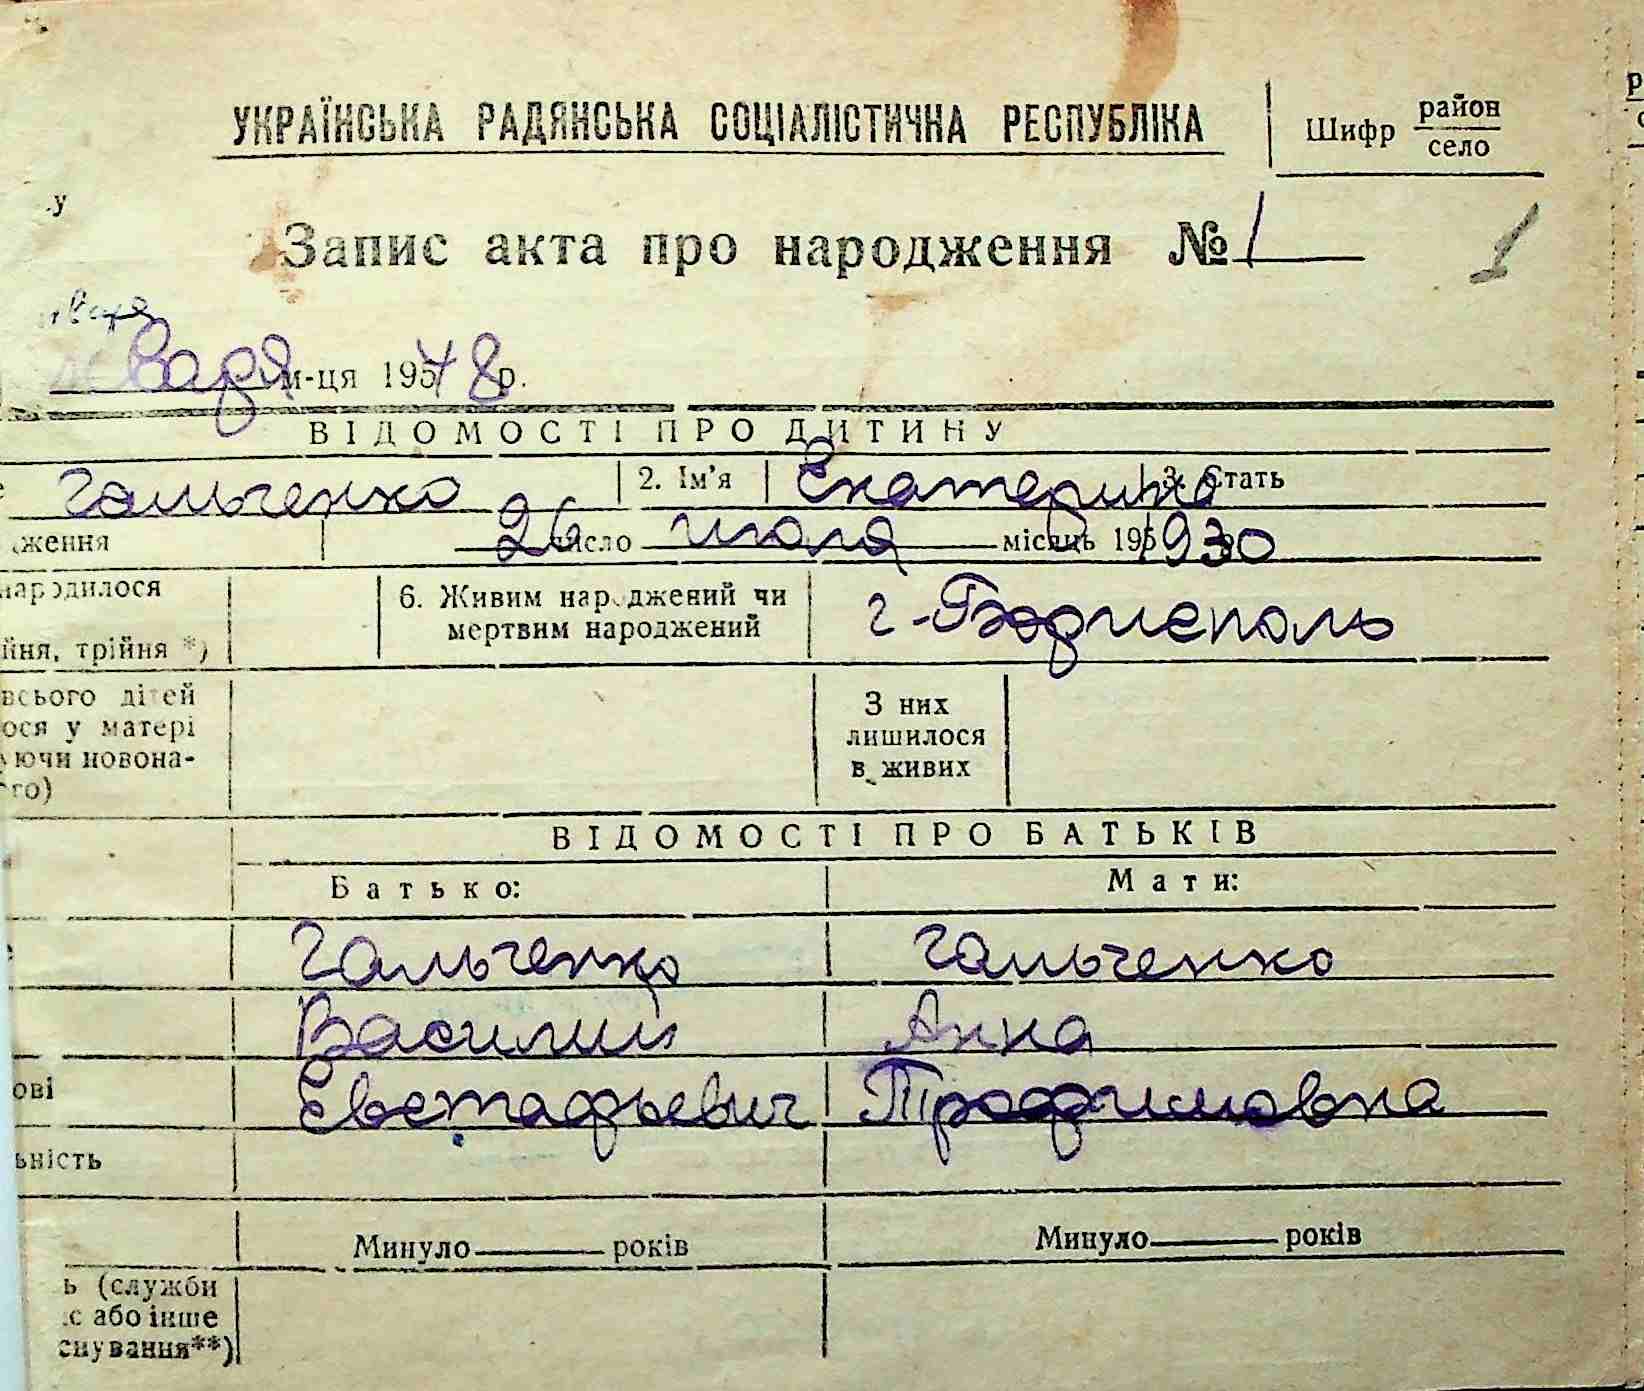 УКРАЇНСЬКА РАДЯНСЬКА СОЦІАЛІСТИЧНА РЕСПУБЛІКА
Шифр район
село
у
Запис акта про народження № 1
1
нваря
января м-ця 1978 р.
ВІДОМОСТІ ПРО ДИТИНУ
Гальченко 2. Ім'я Екатерина 3. Стать
ження 26 число июля місяць 1930
народилося
йня, трійня *)
6. Живим народжений чи
мертвим народжений
г-Борисполь
всього дітей
ося у матері
ючи новона-
го)
З них
лишилося
в живих
ВІДОМОСТІ ПРО БАТЬКІВ
Батько: Мати:
Гальченко Гальченко
Василий Анна
ові Евстафьевич Трофимовна
ьність
Минуло років Минуло років
ь (служби
с або інше
снування**)